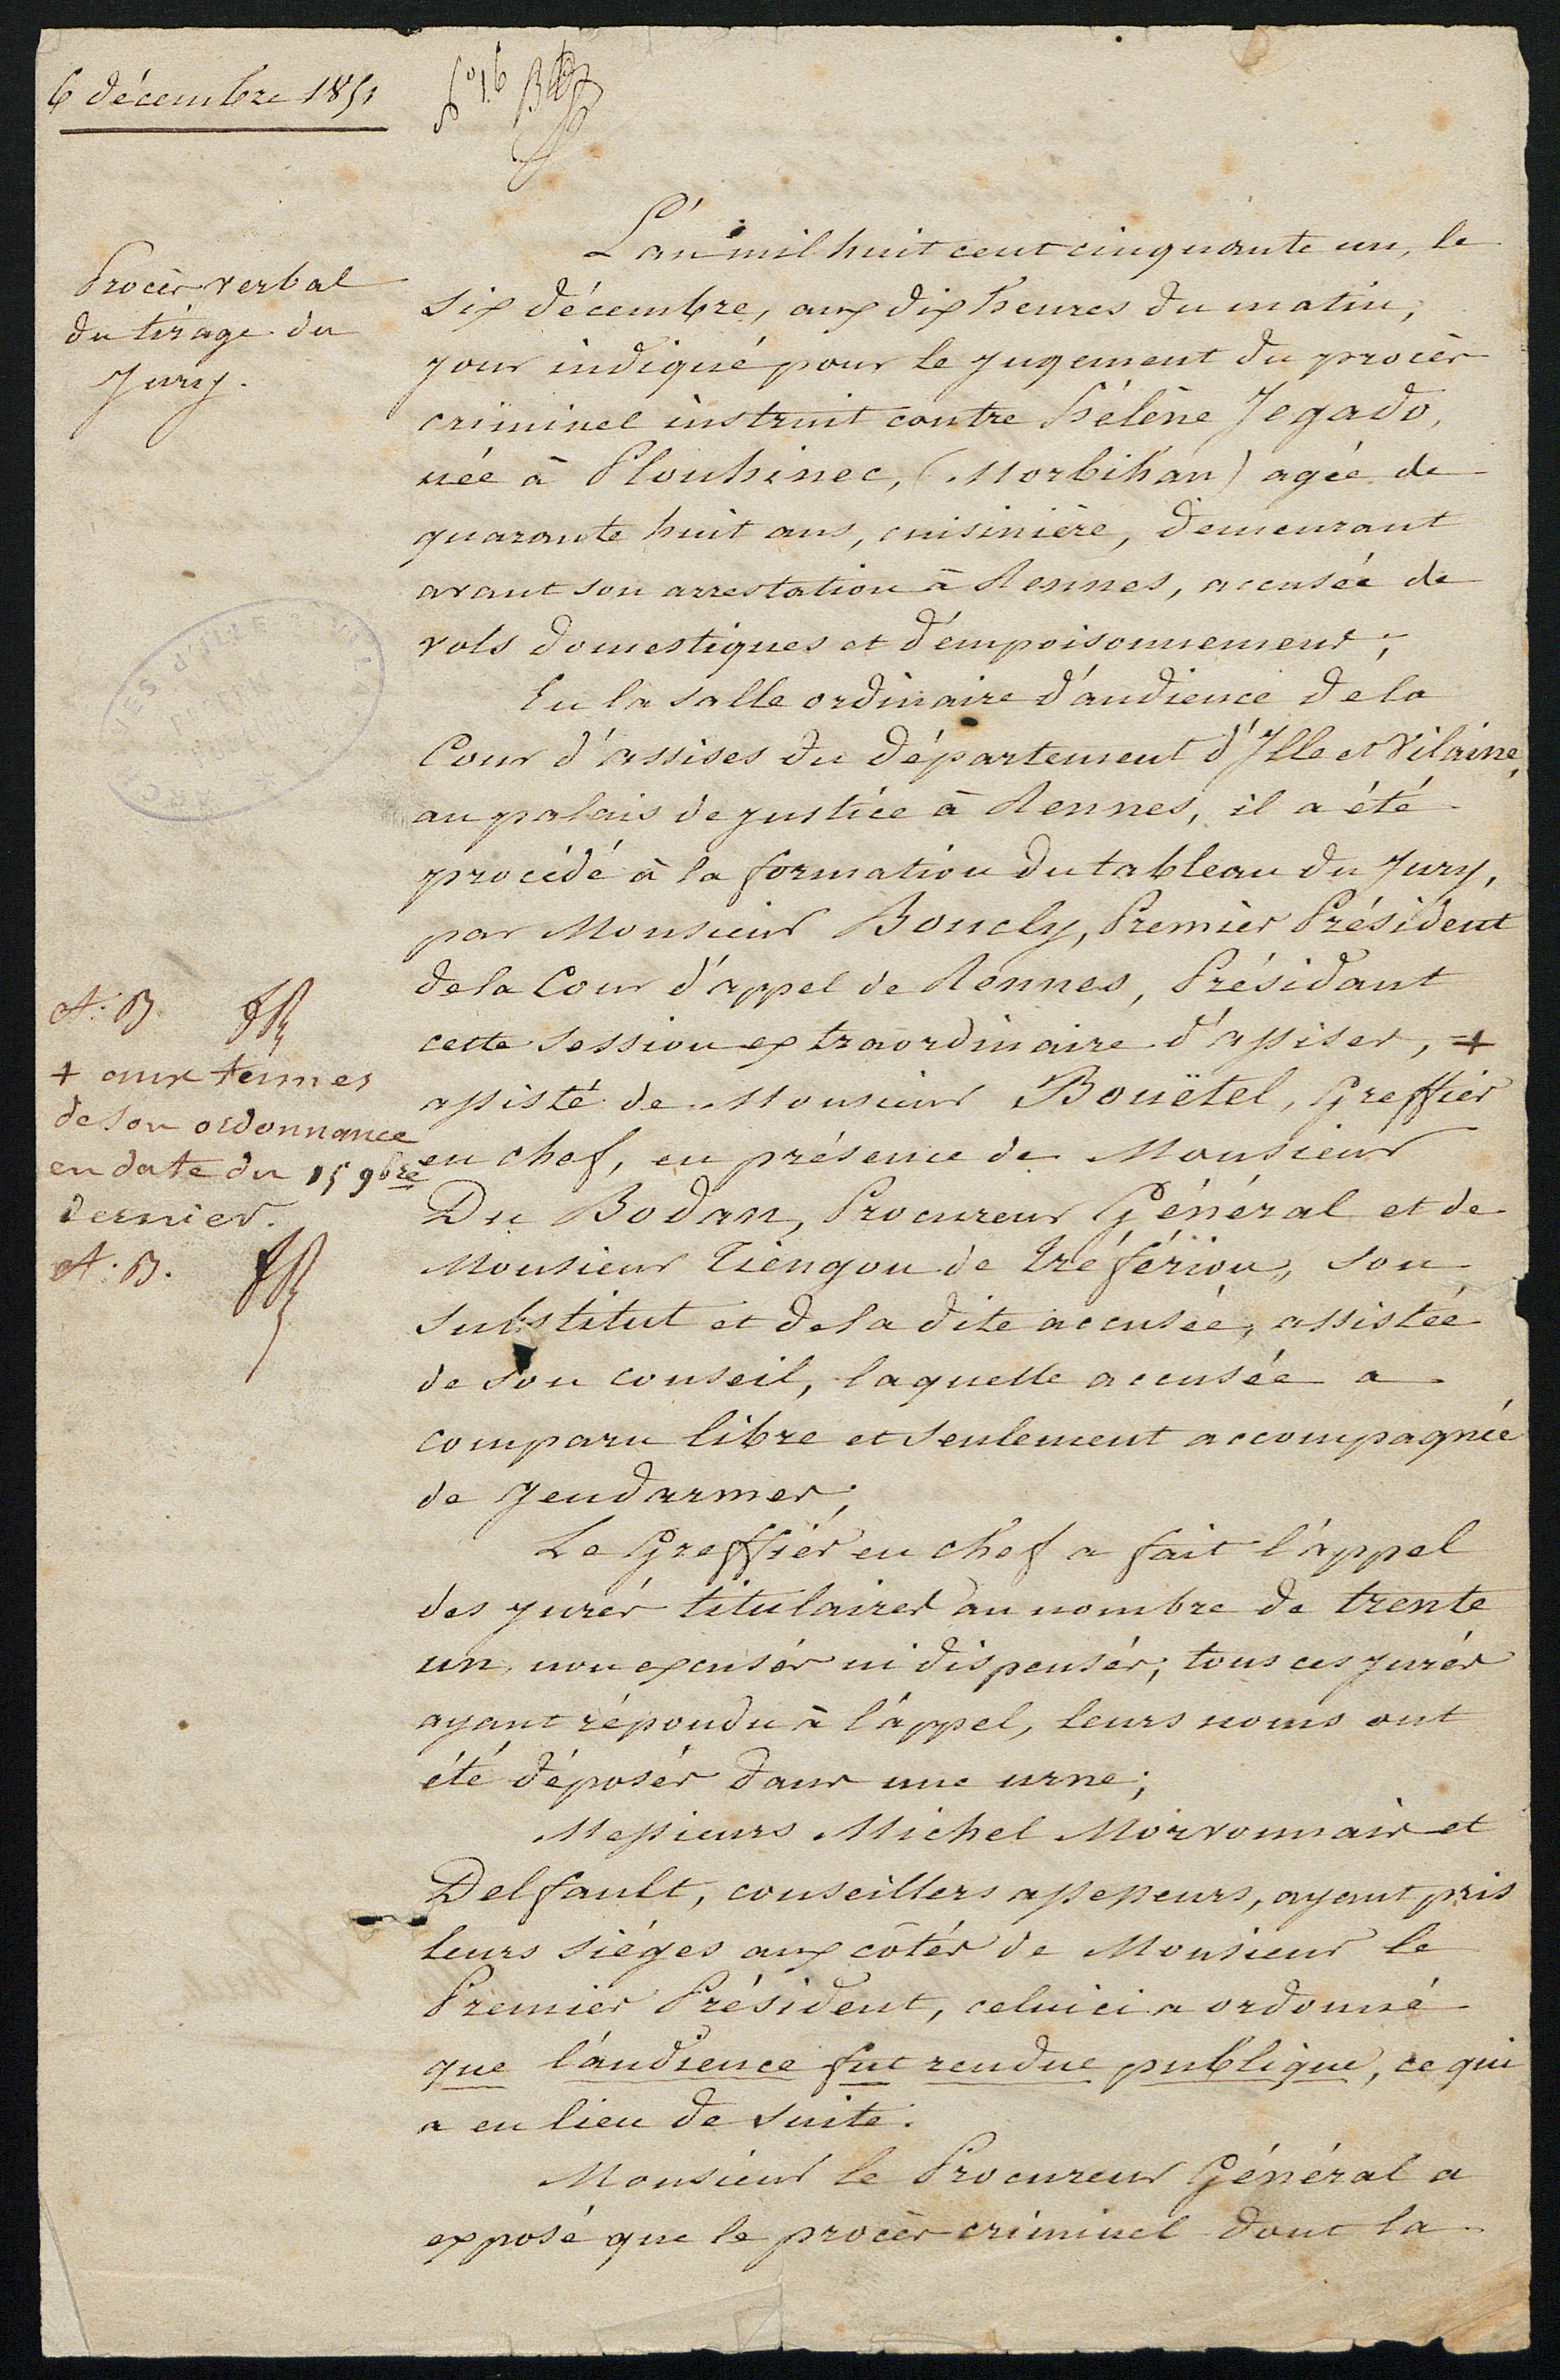 6 décembre 1851
fo 16
Procès verbal
du tirage du
Jury.
L'an mil huit cent cinquante un, le
six décembre, aux dix heures du matin,
jour indiqué pour le jugement du procès
criminel instruit contre Hélène Jegado,
née à Plouhinec, (Morbihan) agée de
quarante huit ans, cuisinière, demeurant
avant son arrestation à Rennes, accusée de
vols domestiques et d'empoisonnement;
En la salle ordinaire d'audience de la
Cour d'assises du département d'Ille et Vilaine,
au palais de justice à Rennes, il a été
procédé à la formation du tableau du Jury,
par Monsieur Boucly, Premier Président
de la Cour d'appel de Rennes, Présidant
cette session extraordinaire d'assises, +
assisté de Monsieur Bouëtel, Greffier
en chef, en présence de Monsieur
Du Bodan, Procureur Général et de
Monsieur Tiengou de Tréfériou, son
substitut et de la dite accusée, assistée
de son conseil, laquelle accusée a
comparu libre et seulement accompagnée
de gendarmes;
Le Greffier en chef a fait l'appel
des jurés titulaires au nombre de trente
un, non excusés ni dispensés; tous ces jurés
ayant répondu à l'appel, leurs noms ont
été déposés dans une urne;
Messieurs Michel Morvonnais et
Delfault, conseillers assesseurs, ayant pris
leurs siéges aux côtés de Monsieur le
Premier Président, celui ci a ordonné
que l'audience fut rendue publique, ce qui
a eu lieu de suite.
Monsieur le Procureur Général a
exposé que le procès criminel dont la
A. B.
+ aux termes
de son ordonnance
en date du 15 9bre
dernier.
A. B.